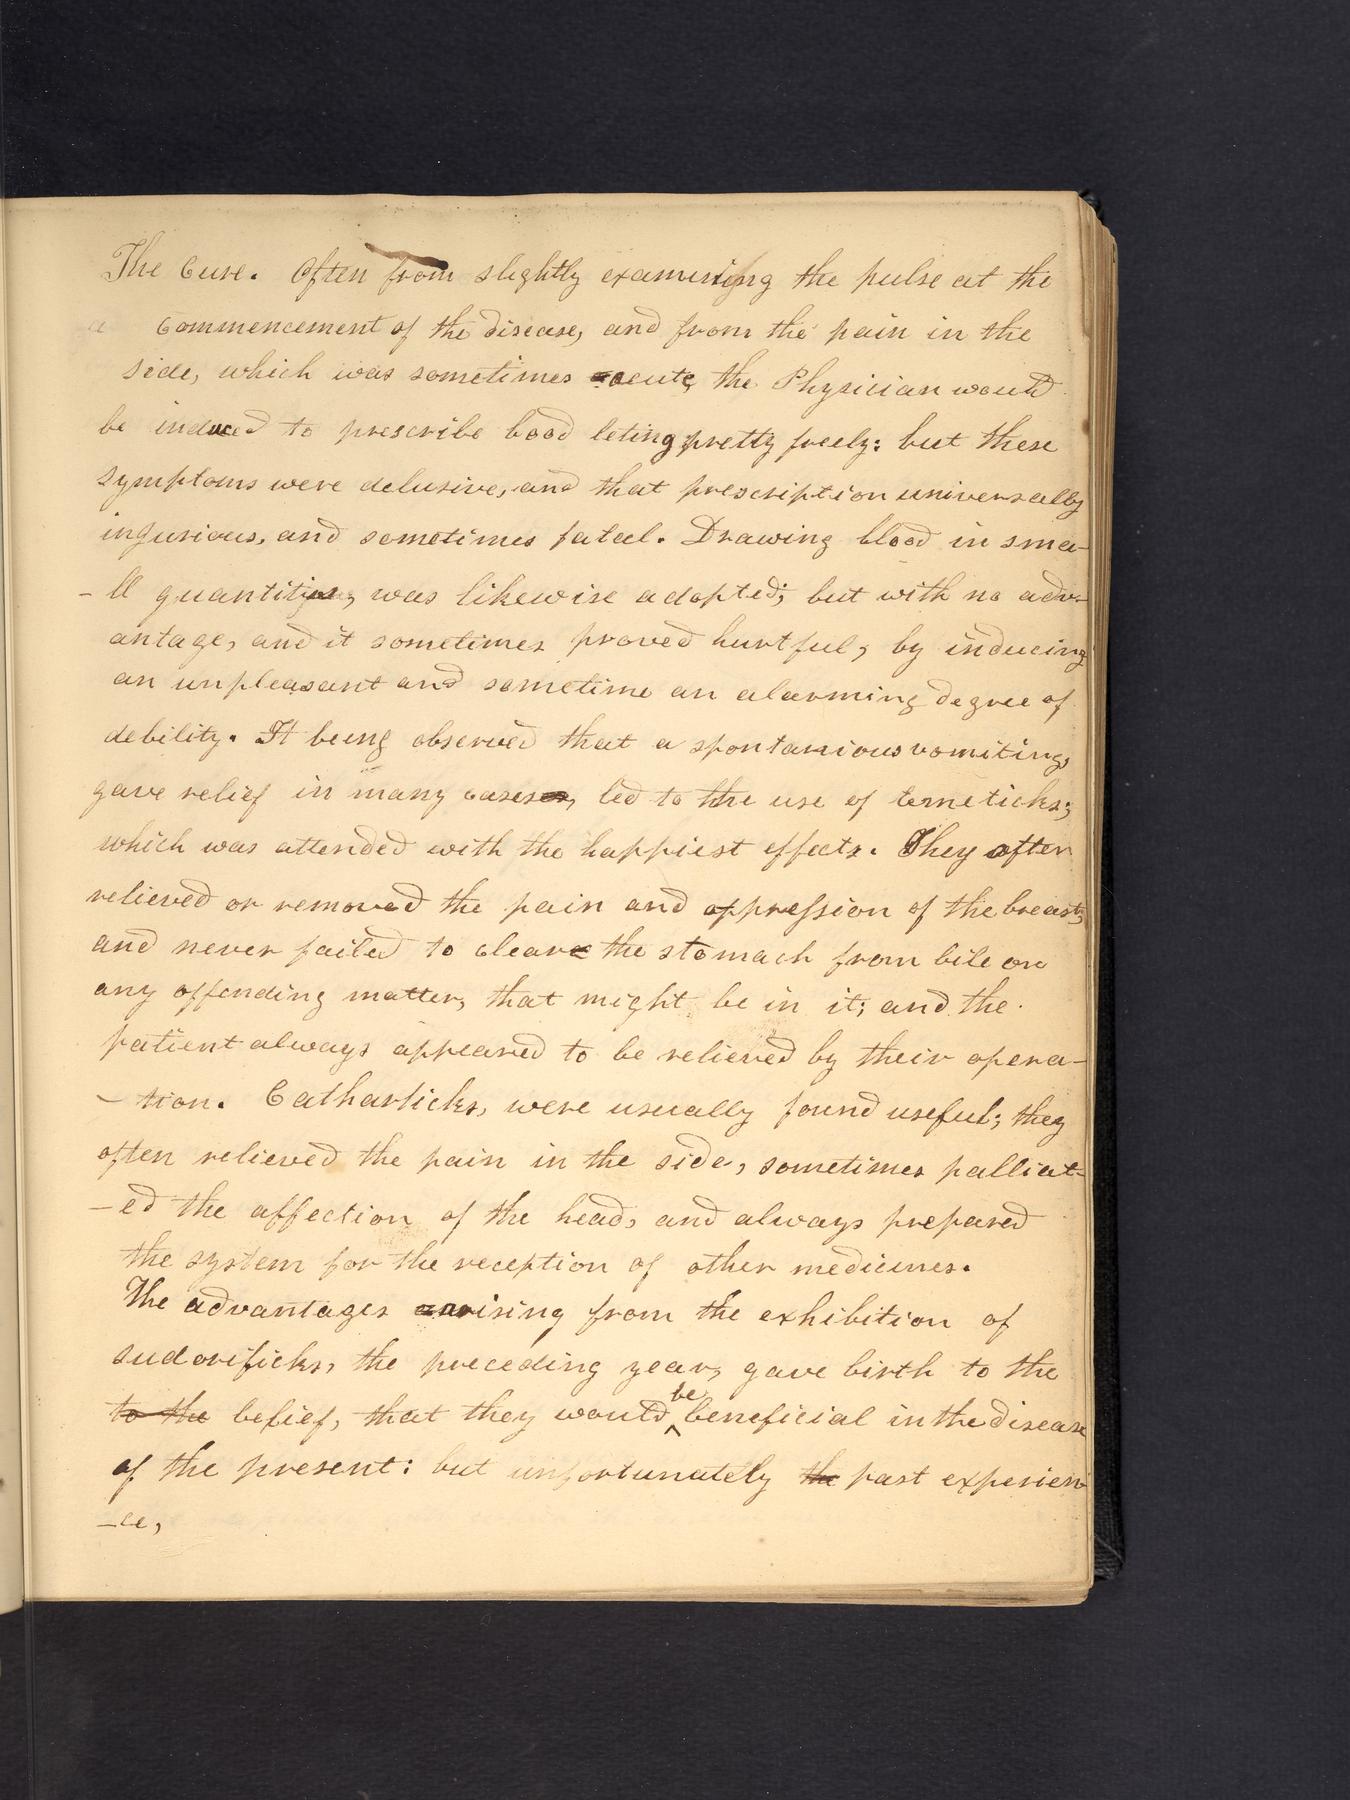 The Cure. Often from slightly examining the pulse at the
commencement of the disease, and from the pain in the
side, which was sometimes acute, the Physician would
be induced to prescribe bood leting pretty freely: but these
symptoms were delusive, and that prescription universally
ingurious, and sometimes fatal. Drawing blood in sma-
-ll quantities, was likewise adopted; but with no adv-
antage, and it sometimes proved hurtful, by inducing
an unpleasant and sometime an alarming degree of
debility. It being observed that a spontanious vomiting,
gave relief in many cases, led to the use of emeticks;
which was attended with the happiest effects. They often
relieved or removed the pain and oppression of the breast,
and never failed to clear the stomach from bile or
any offending matter, that might be in it; and the
patient always appeared to be relieved by their opera-
-tion. Catharticks, were usually found useful; they
often relieved the pain in the side, sometimes palliat-
-ed the affection of the head, and always prepared
the system for the reception of other medicines.
The advantages arising from the exhibition of
sudorificks, the preceding year, gave birth to the
to the belief, that they would be beneficial in the disease
of the present: but unfortunately the past experien-
-ce,